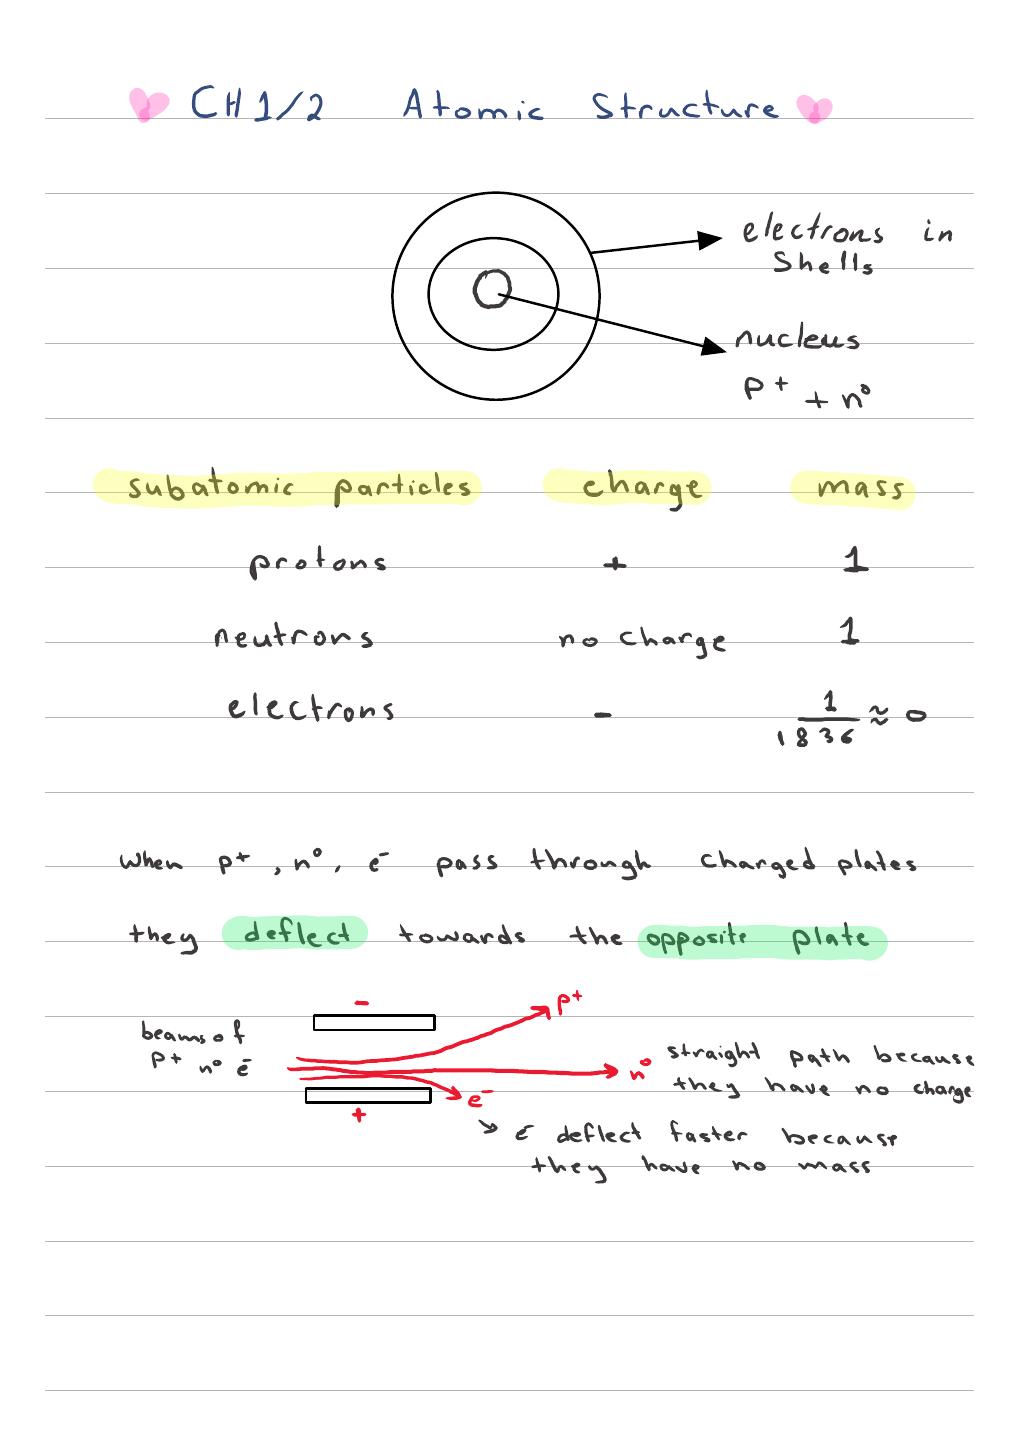 CH 1/2 Atomic Structure
electrons in
shells
nucleus
p⁺ + n⁰
subatomic particles charge mass
protons + 1
neutrons no charge 1
electrons - 1/1836 ≈ 0
When p⁺, n⁰, e⁻ pass through charged plates
they deflect towards the opposite plate
-
p⁺
beams of
p⁺ n⁰ e⁻
n⁰ straight path because
they have no charge
e⁻
+
↘ e⁻ deflect faster because
they have no mass